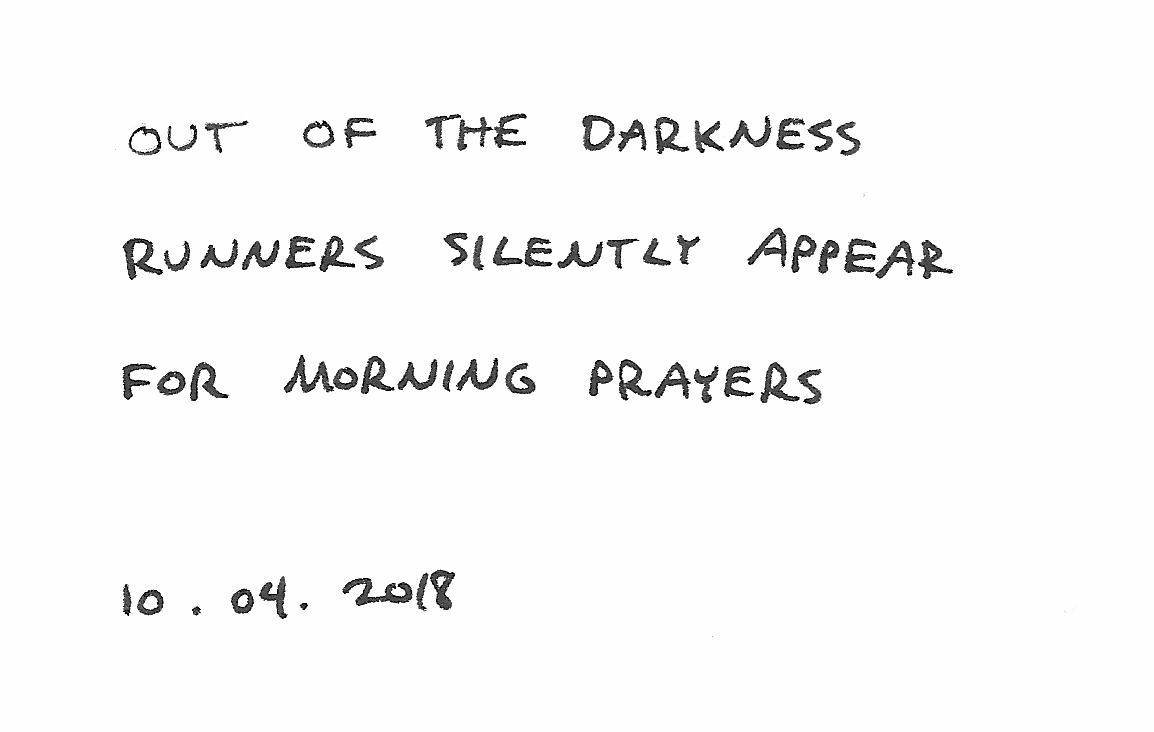 OUT OF THE DARKNESS
RUNNERS SILENTLY APPEAR
FOR MORNING PRAYERS
10.04.2018